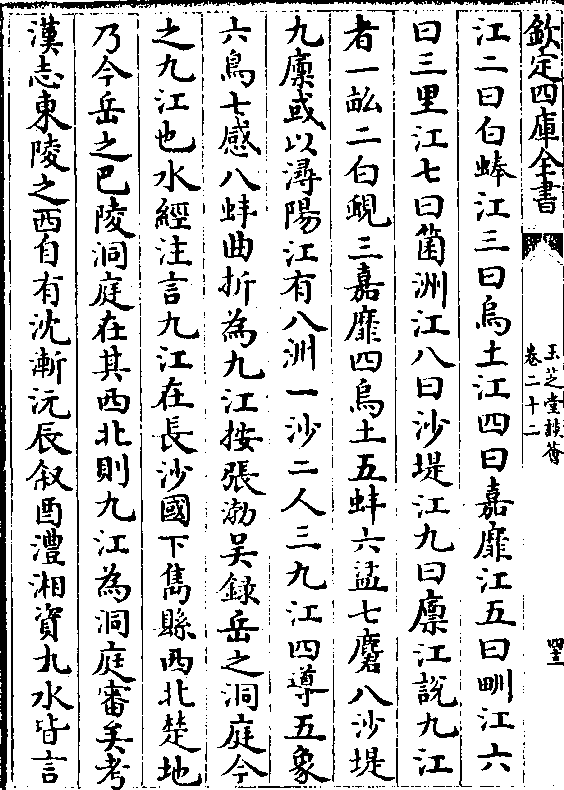 欽定四庫全書
玉芝堂談薈
卷二十二
江二曰白蜯江三曰烏土江四曰嘉靡江五曰畎江六
曰三里江七曰箘洲江八曰沙堤江九曰廩江說九江
者一畆二白蜆三嘉靡四烏土五蚌六盂七麏八沙堤
九廩或以潯陽江有八洲一沙二人三九江四導五象
六鳥七感八蚌曲折為九江按張渤吴録岳之洞庭今
之九江也水經注言九江在長沙國下雋縣西北楚地
乃今岳之巴陵洞庭在其西北則九江為洞庭審矣考
漢志東陵之西自有沈漸沅辰叙酉澧湘資九水皆言